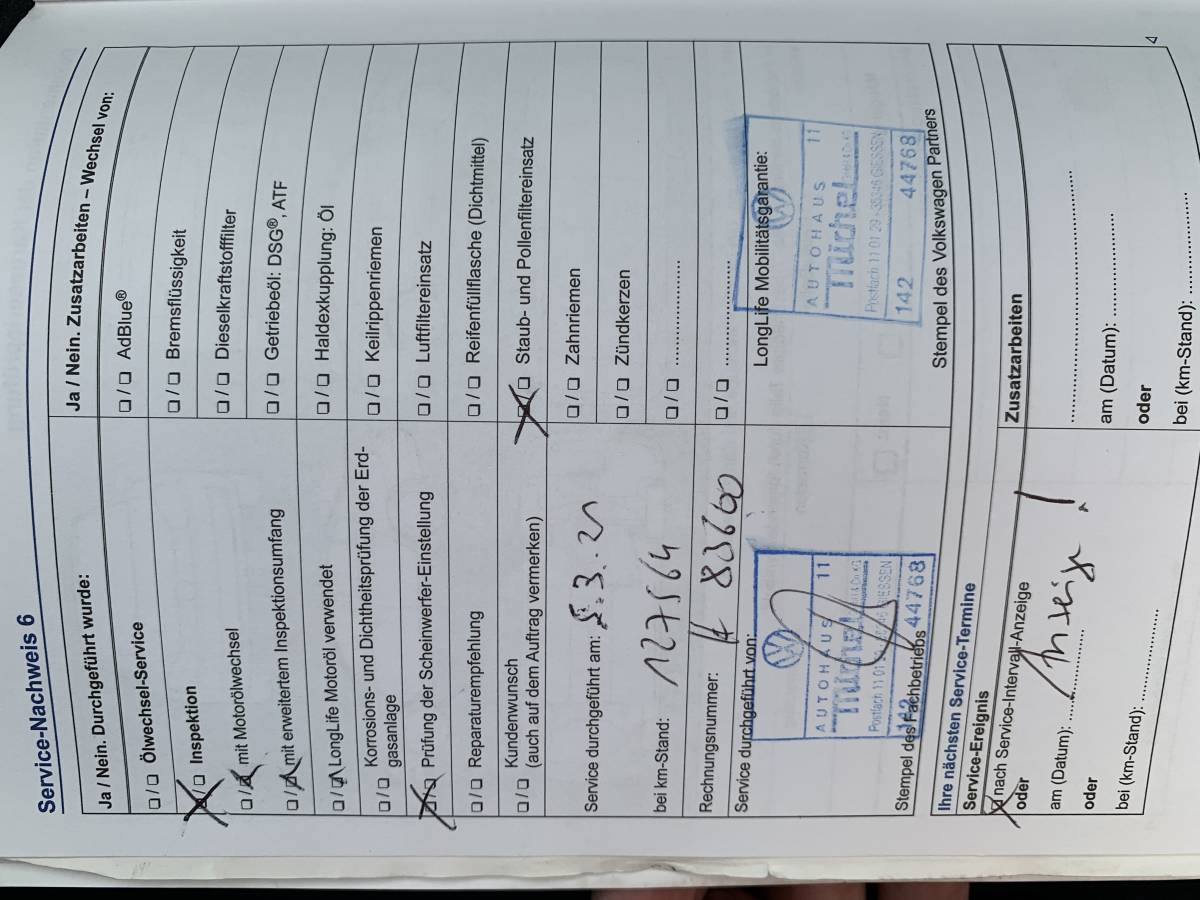 Service-Nachweis 6
Ja / Nein. Durchgeführt wurde:
❑ / ❑ Ölwechsel-Service
❑ / ❑ Inspektion
❑ / ❑ mit Motorölwechsel
❑ / ❑ mit erweitertem Inspektionsumfang
❑ / ❑ LongLife Motoröl verwendet
❑ / ❑ Korrosions- und Dichtheitsprüfung der Erd-
gasanlage
❑ / ❑ Prüfung der Scheinwerfer-Einstellung
❑ / ❑ Reparaturempfehlung
❑ / ❑ Kundenwunsch
(auch auf dem Auftrag vermerken)
Service durchgeführt am:
bei km-Stand: 127564
Rechnungsnummer: 83600
Service durchgeführt von:
AUTOHAUS 11
michel
Postfach 11 01 GIESSEN
142 44768
Stempel des Fachbetriebs
Ja / Nein. Zusatzarbeiten – Wechsel von:
❑ / ❑ AdBlue®
❑ / ❑ Bremsflüssigkeit
❑ / ❑ Dieselkraftstofffilter
❑ / ❑ Getriebeöl: DSG®, ATF
❑ / ❑ Haldexkupplung: Öl
❑ / ❑ Keilrippenriemen
❑ / ❑ Luftfiltereinsatz
❑ / ❑ Reifenfüllflasche (Dichtmittel)
❑ / ❑ Staub- und Pollenfiltereinsatz
❑ / ❑ Zahnriemen
❑ / ❑ Zündkerzen
❑ / ❑ ....................
❑ / ❑ ....................
LongLife Mobilitätsgarantie:
AUTOHAUS 11
michel
Postfach 11 01 29 - 35346 GIESSEN
142 44768
Stempel des Volkswagen Partners
Ihre nächsten Service-Termine
Service-Ereignis
❑ nach Service-Intervall-Anzeige
oder
am (Datum): ....................
oder
bei (km-Stand): ....................
Zusatzarbeiten
........................................
am (Datum): ....................
oder
bei (km-Stand): ....................